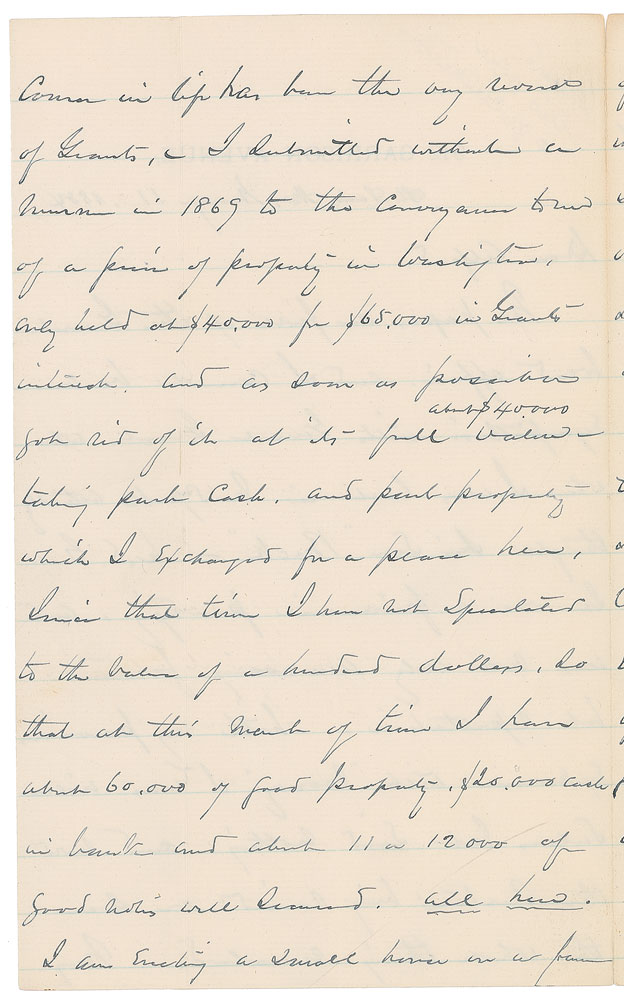 Course in life has been the very reverse
of Grants, & I submitted without a
murmur in 1869 to the Conveyance to me
of a piece of property in Washington,
only held at $40,000 for $65,000 in Grants
interest. and as soon as possible
about $40000
got rid of it at its full value -
taking part Cash. and part property
which I Exchanged for a place here,
Since that time I have not Speculated
to the value of a hundred dollars, So
that at this moment of time I have
about 60,000 of good property, $20,000 cash
in bank and about 11 or 12000 of
good notes well Secured. all here.
I am Erecting a small house on a